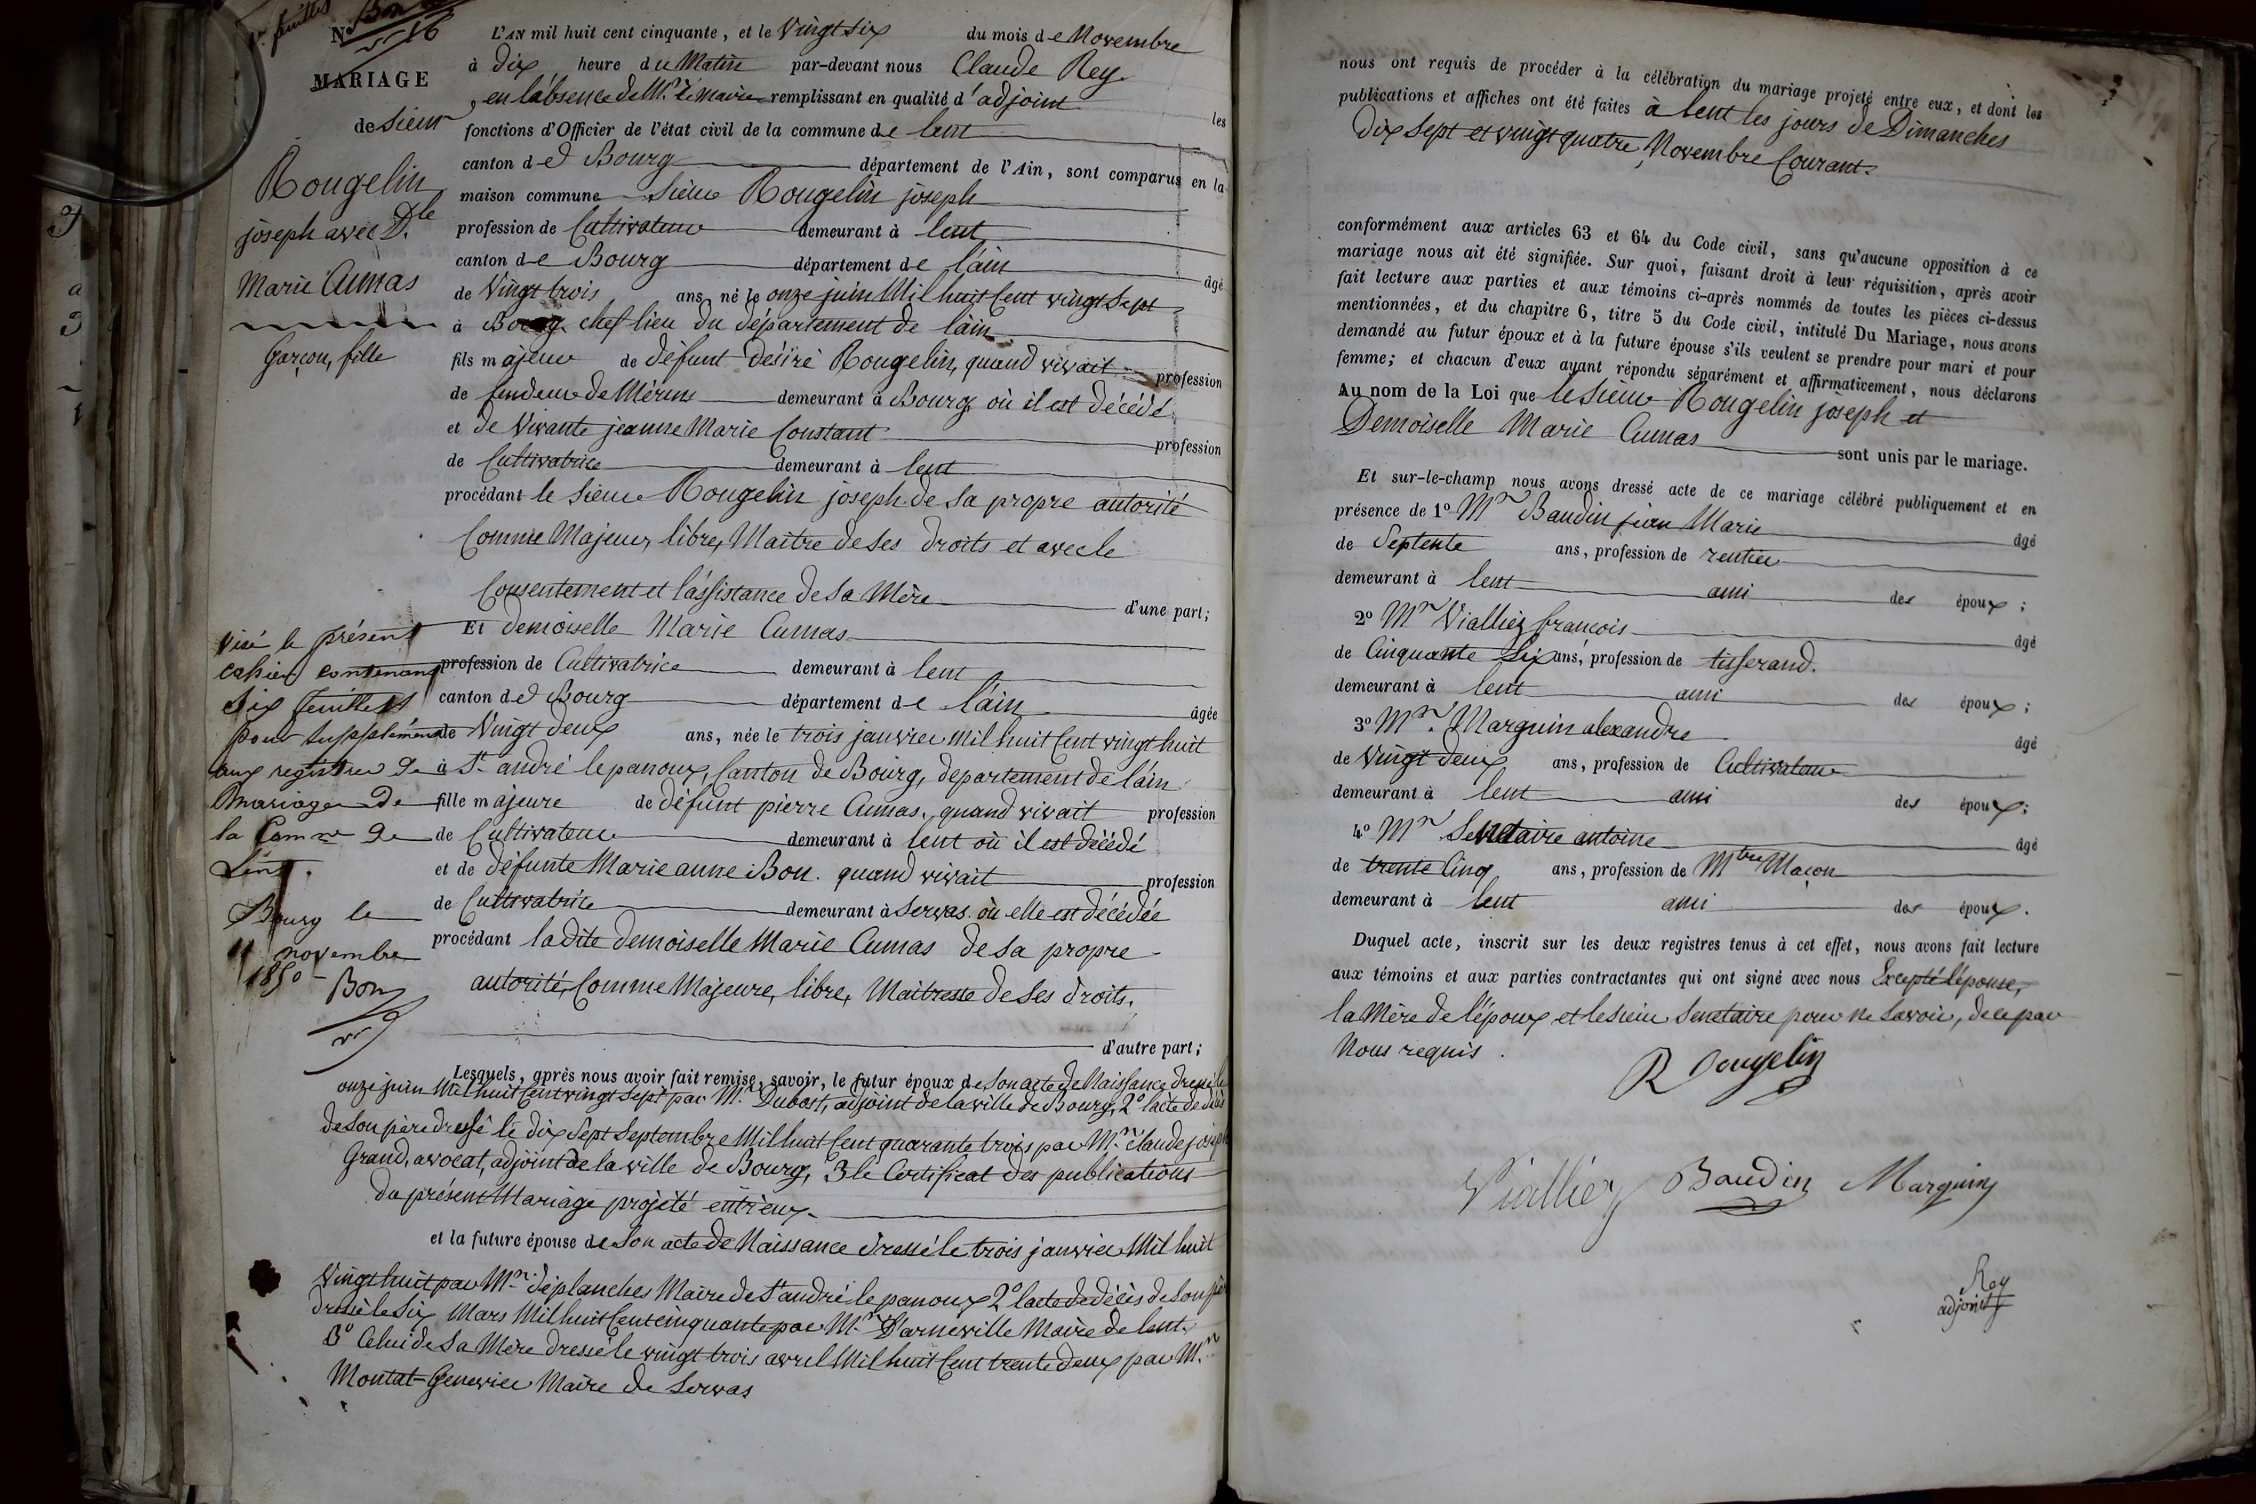 1er feuillet
Bon
N° 16
MARIAGE
de sieur
Rougelin
joseph avec Dlle
Marie Cumas
Garçon, fille
L'AN mil huit cent cinquante, et le Vingt six du mois de Novembre
à dix heure du Matin par-devant nous Claude Rey.
, en l'absence de Mr le maire remplissant en qualité d'adjoint les
fonctions d'Officier de l'état civil de la commune de lent
canton de Bourg département de l'Ain, sont comparus en la
maison commune sieur Rougelin joseph
profession de Cultivateur demeurant à lent
canton de Bourg département de l'ain âgé
de Vingt trois ans né le onze juin Mil huit Cent vingt Sept
à Bourg chef lieu du département de l'ain
fils majeur de défunt désiré Rougelin, quand vivait profession
de fendeur de Mérins demeurant à Bourg où il est décédé
et de Vivante jeanne Marie Constant profession
de Cultivatrice demeurant à lent
procédant le sieur Rougelin joseph de sa propre autorité
Comme Majeur, libre, Maitre de ses droits et avec le
Consentement et l'assistance de sa Mère d'une part;
Et demoiselle Marie Cumas
profession de Cultivatrice demeurant à lent
canton de Bourg département de l'ain âgée
de Vingt deux ans, née le trois janvier mil huit Cent vingt huit
à St andré le panoux, Canton de Bourg, departement de l'ain
fille majeure de défunt pierre Cumas, quand vivait profession
de Cultivateur demeurant à lent où il est décédé
et de défunte Marie anne Bon. quand vivait profession
de Cultivatrice demeurant à Servas. où elle est décédée
procédant la dite demoiselle Marie Cumas de sa propre
autorité, Comme Majeure, libre, Maitresse de ses droits.
d'autre part;
Visé le présent
cahier contenant
six feuillets
pour supplément
aux registres de
mariage de
la Comne de
Lent.
Bourg le
11 novembre
1850
Bon
Lesquels, après nous avoir fait remise, savoir, le futur époux de Son acte de Naissance dressé le
onze juin Mil huit Cent vingt sept par Mr Dubost, adjoint de la ville de Bourg, 2° l'acte de décès
de son père dressé le dix Sept Septembre Mil huit Cent quarante trois par Mr Claude joseph
Grand, avocat, adjoint de la ville de Bourg, 3 le Certificat des publications
du présent Mariage projeté entr'eux.
et la future épouse de Son acte de Naissance dressé le trois janvier Mil huit
Vingt huit par Mr déplanches Maire de St andré le panoux 2° l'acte de décès de Son père
dressé le six Mars Mil huit Cent cinquante par Mr D'arneville Maire de lent.
3° Celui de Sa Mère dressé le vingt trois avril Mil huit Cent trente deux par Mr
Montat Genevier Maire de Servas
nous ont requis de procéder à la célébration du mariage projeté entre eux, et dont les
publications et affiches ont été faites à lent les jours de Dimanches
Dix Sept et vingt quatre, Novembre Courant.
conformément aux articles 63 et 64 du Code civil, sans qu'aucune opposition à ce
mariage nous ait été signifiée. Sur quoi, faisant droit à leur réquisition, après avoir
fait lecture aux parties et aux témoins ci-après nommés de toutes les pièces ci-dessus
mentionnées, et du chapitre 6, titre 5 du Code civil, intitulé Du Mariage, nous avons
demandé au futur époux et à la future épouse s'ils veulent se prendre pour mari et pour
femme; et chacun d'eux ayant répondu séparément et affirmativement, nous déclarons
Au nom de la Loi que le sieur Rougelin joseph et
Demoiselle Marie Cumas sont unis par le mariage.
Et sur-le-champ nous avons dressé acte de ce mariage célébré publiquement et en
présence de 1° Mr Baudin jean Marie âgé
de Septente ans, profession de rentier
demeurant à lent ami des époux;
2° Mr Viallier françois âgé
de Cinquante Six ans, profession de tisserand.
demeurant à lent ami des époux;
3° Mr. Marguin alexandre âgé
de Vingt deux ans, profession de Cultivateur
demeurant à lent ami des époux;
4° Mr Senetaire antoine âgé
de trente Cinq ans, profession de Mtre Maçon
demeurant à lent ami des époux.
Duquel acte, inscrit sur les deux registres tenus à cet effet, nous avons fait lecture
aux témoins et aux parties contractantes qui ont signé avec nous Excepté l'épouse,
la Mère de l'époux et le sieur Senetaire pour ne savoir, de ce par
Nous requis.
Rougelin
Viallier Baudin Marguin
Rey
adjoint